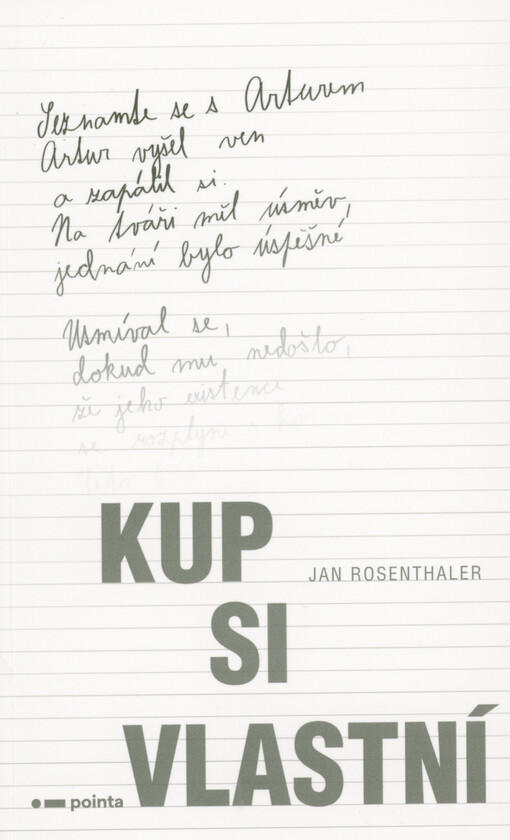 Seznamte se s Arturem
Artur vyšel ven
a zapálil si.
Na tváři měl úsměv,
jednání bylo úspěšné
Usmíval se,
dokud mu nedošlo,
že jeho existence
se rozplyne s
KUP
JAN ROSENTHALER
SI
VLASTNÍ
pointa